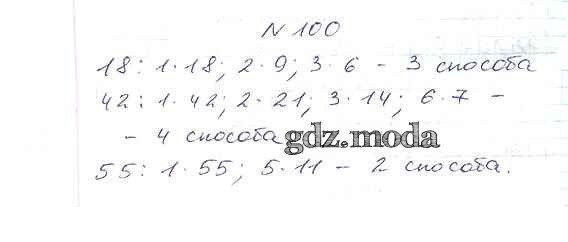 N 100
18: 1·18; 2·9; 3·6 - 3 способа
42: 1·42; 2·21; 3·14; 6·7 -
- 4 способа
gdz.moda
55: 1·55; 5·11 - 2 способа.